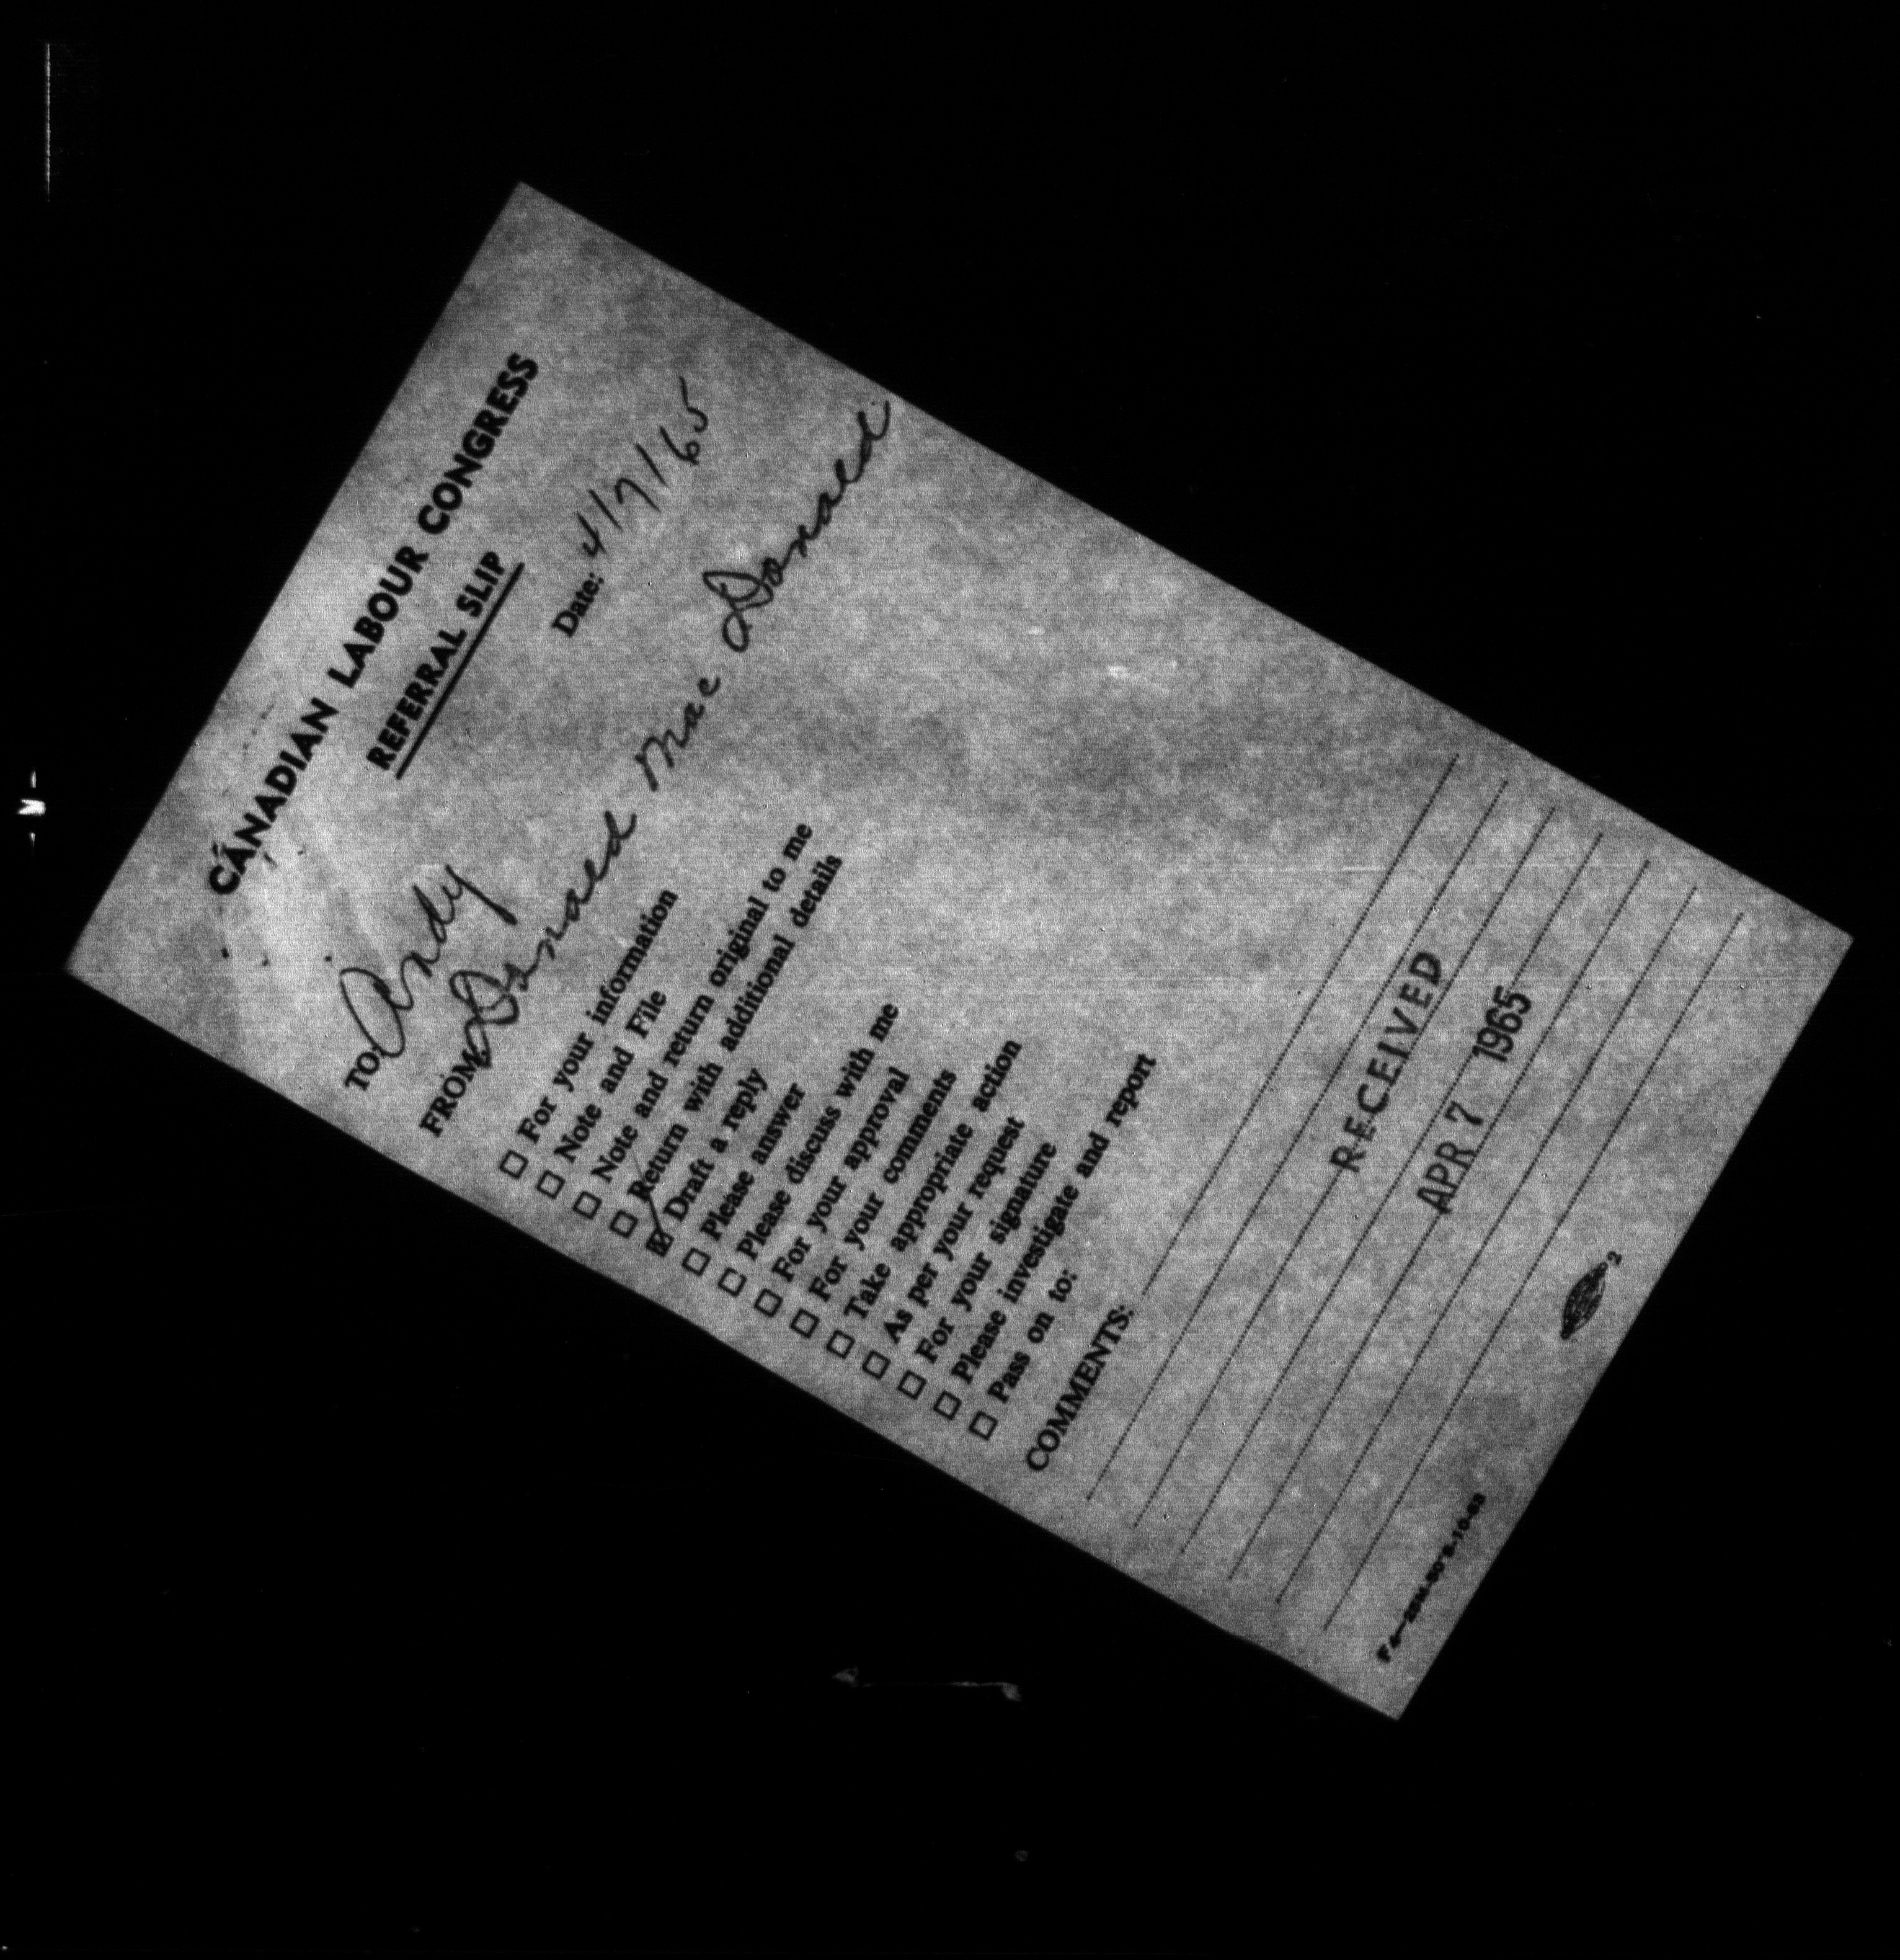 CANADIAN LABOUR CONGRESS
REFERRAL SLIP
Date: 4/7/65
TO: Andy
FROM: Donald MacDonald
☐ For your information
☐ Note and File
☐ Note and return original to me
☐ Return with additional details
☑ Draft a reply
☐ Please answer
☐ Please discuss with me
☐ For your approval
☐ For your comments
☐ Take appropriate action
☐ As per your request
☐ For your signature
☐ Please investigate and report
☐ Pass on to:
COMMENTS:
RECEIVED
APR 7 1965
2